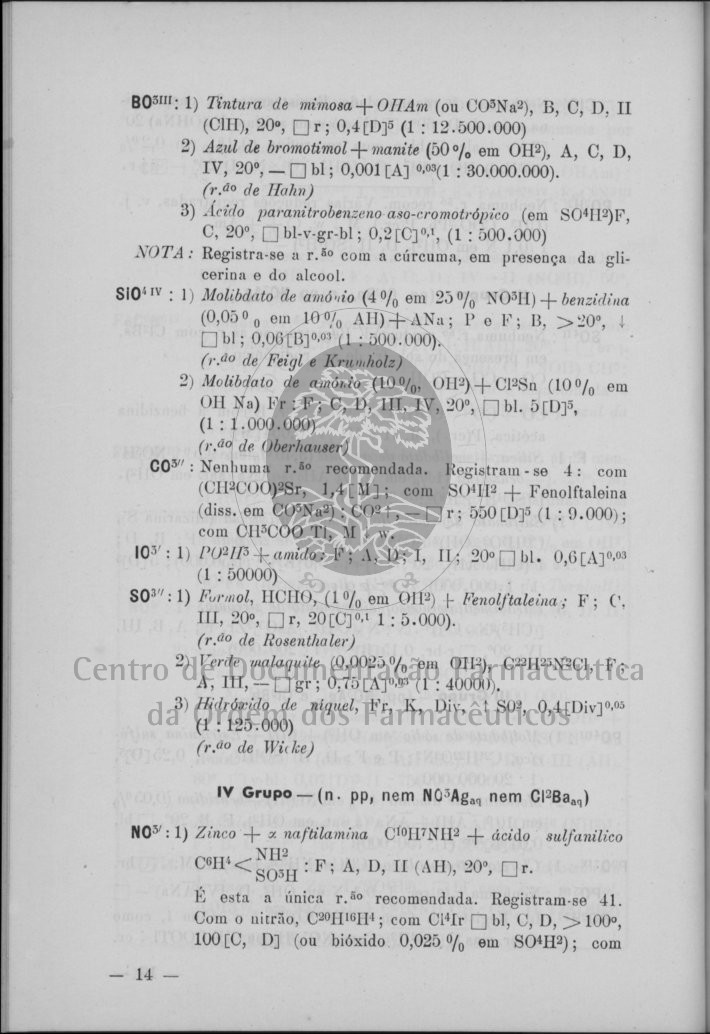 BO³ᴵᴵᴵ: 1) Tintura de mimosa + OHAm (ou CO³Na²), B, C, D, II
(ClH), 20º, □ r; 0,4[D]⁵ (1 : 12.500.000)
2) Azul de bromotimol + manite (50 % em OH²), A, C, D,
IV, 20º, — □ bl; 0,001 [A] ⁰,⁰³(1 : 30.000.000).
(r.ão de Hahn)
3) Ácido paranitrobenzeno aso-cromotrópico (em SO⁴H²)F,
C, 20º, □ bl-v-gr-bl; 0,2[C]⁰,¹, (1 : 500.000)
NOTA: Registra-se a r.ão com a cúrcuma, em presença da gli-
cerina e do alcool.
SiO⁴ ᴵⱽ : 1) Molibdato de amónio (4 % em 25 % NO³H) + benzidina
(0,05 % em 10 % AH) + ANa; P e F; B, >20º, ↓
□ bl; 0,06[B]⁰,⁰³ (1 : 500.000).
(r.ão de Feigl e Krumholz)
2) Molibdato de amónio (10 %, OH²) + Cl²Sn (10 % em
OH Na) Fr : F; C, D, III, IV, 20º, □ bl. 5[D]⁵,
(1 : 1.000.000)
(r.ão de Oberhauser)
CO³″ : Nenhuma r.ão recomendada. Registram-se 4: com
(CH²COO)²Sr, 1,4[M]; com SO⁴H² + Fenolftaleina
(diss. em CO³Na²) : CO² ↑, — □ r; 550[D]⁵ (1 : 9.000);
com CH³COO Tl, M w.
IO³′ : 1) PO²H³ + amido; F; A, D; I, II; 20º □ bl. 0,6[A]⁰,⁰³
(1 : 50000)
SO³″ : 1) Formol, HCHO, (1 % em OH²) + Fenolftaleina; F; C,
III, 20º, □ r, 20[C]⁰,¹ 1 : 5.000).
(r.ão de Rosenthaler)
2) Verde malaquite (0,0025 % em OH²), C²²H²⁵N²Cl, F;
A, III, — □ gr; 0,75[A]⁰,⁰³ (1 : 40000).
3) Hidróxido de níquel, Fr, K, Div, ↑ SO², 0,4[Div]⁰,⁰⁵
(1 : 125.000)
(r.ão de Wicke)
Centro de Documentação Farmacêutica
da Ordem dos Farmacêuticos
IV Grupo — (n. pp, nem NO³Ag aq nem Cl²Ba aq)
NO³′ : 1) Zinco + α naftilamina C¹⁰H⁷NH² + ácido sulfanílico
C⁶H⁴ < NH² SO³H : F; A, D, II (AH), 20º, □ r.
É esta a única r.ão recomendada. Registram-se 41.
Com o nitrão, C²⁰H¹⁶H⁴; com Cl⁴Ir □ bl, C, D, >100º,
100[C, D] (ou bióxido 0,025 % em SO⁴H²); com
— 14 —